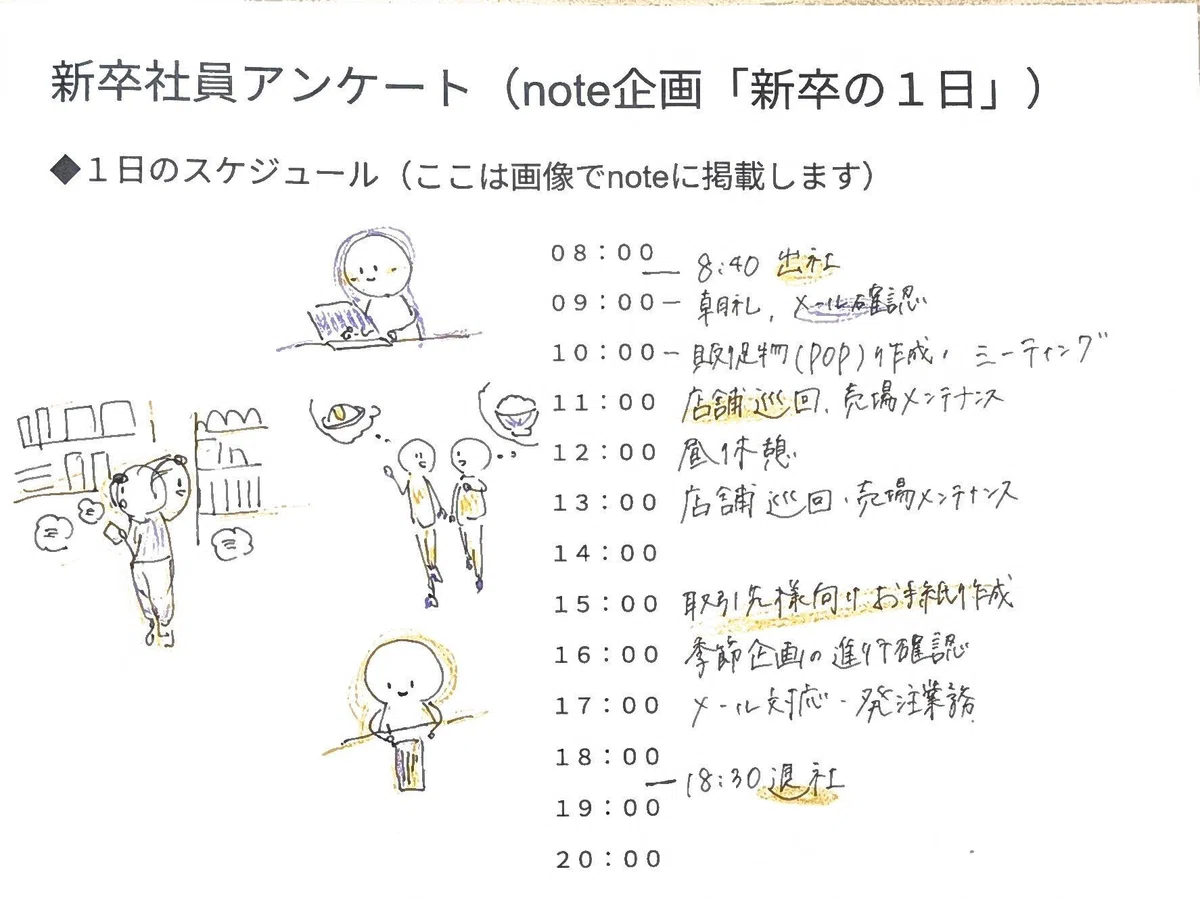 新卒社員アンケート（note企画「新卒の１日」）
◆１日のスケジュール（ここは画像でnoteに掲載します）
０８：００
8:40 出社
０９：００ー 朝礼, メール確認
１０：００ー 販促物(POP)作成, ミーティング
１１：００ 店舗巡回, 売場メンテナンス
１２：００ 昼休憩
１３：００ 店舗巡回・売場メンテナンス
１４：００
１５：００ 取引先様向けお手紙作成
１６：００ 季節企画の進行確認
１７：００ メール対応・発注業務
１８：００
18:30 退社
１９：００
２０：００